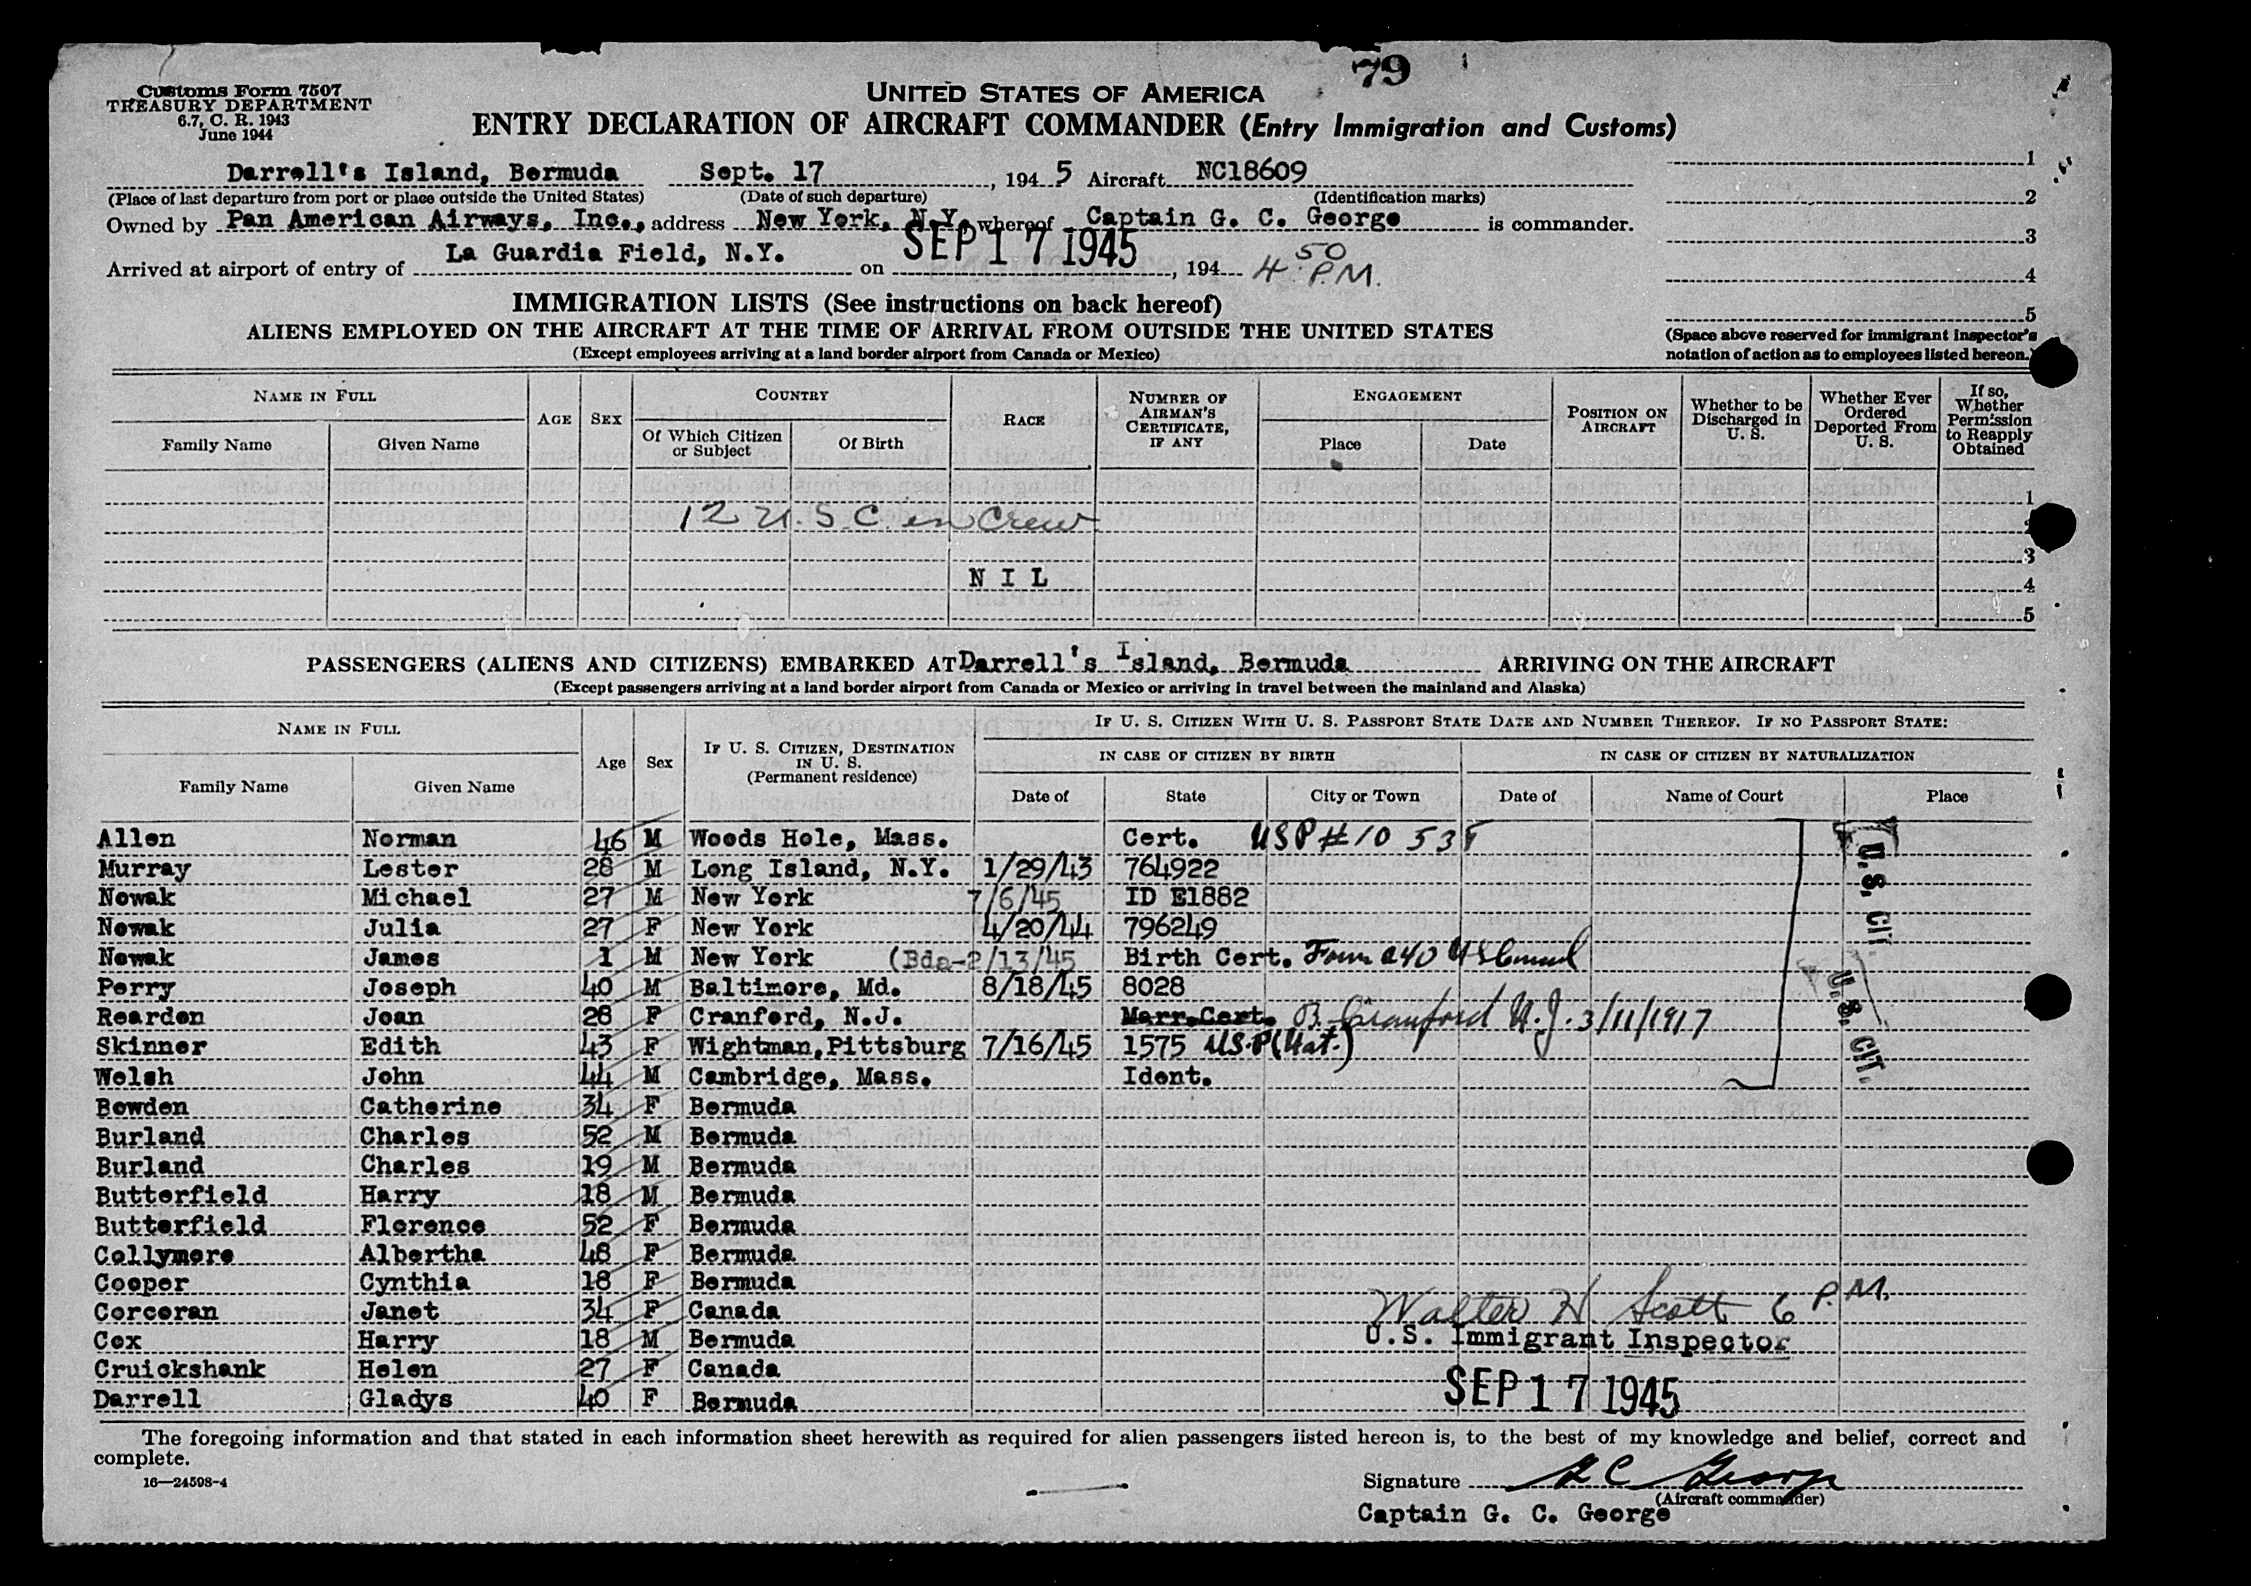 79
Customs Form 7507
TREASURY DEPARTMENT
6.7, C. R. 1943
June 1944
UNITED STATES OF AMERICA
ENTRY DECLARATION OF AIRCRAFT COMMANDER (Entry Immigration and Customs)
Darrell's Island, Bermuda Sept. 17, 1945 Aircraft NC18609
(Place of last departure from port or place outside the United States) (Date of such departure) (Identification marks)
Owned by Pan American Airways, Inc., address New York, N.Y., whereof Captain G. C. George is commander.
Arrived at airport of entry of La Guardia Field, N.Y. on SEP 17 1945, 194 4 50 P.M.
1
2
3
4
5
(Space above reserved for immigrant inspector's
notation of action as to employees listed hereon.)
IMMIGRATION LISTS (See instructions on back hereof)
ALIENS EMPLOYED ON THE AIRCRAFT AT THE TIME OF ARRIVAL FROM OUTSIDE THE UNITED STATES
(Except employees arriving at a land border airport from Canada or Mexico)
NAME IN FULL AGE SEX COUNTRY RACE NUMBER OF AIRMAN'S CERTIFICATE, IF ANY ENGAGEMENT POSITION ON AIRCRAFT Whether to be Discharged in U. S. Whether Ever Ordered Deported From U. S. If so, Whether Permission to Reapply Obtained
Family Name Given Name Of Which Citizen or Subject Of Birth Place Date
1
12 U.S.C. in Crew 2
3
N I L 4
5
PASSENGERS (ALIENS AND CITIZENS) EMBARKED AT Darrell's Island, Bermuda ARRIVING ON THE AIRCRAFT
(Except passengers arriving at a land border airport from Canada or Mexico or arriving in travel between the mainland and Alaska)
NAME IN FULL Age Sex IF U. S. CITIZEN, DESTINATION IN U. S. (Permanent residence) IF U. S. CITIZEN WITH U. S. PASSPORT STATE DATE AND NUMBER THEREOF. IF NO PASSPORT STATE:
IN CASE OF CITIZEN BY BIRTH IN CASE OF CITIZEN BY NATURALIZATION
Family Name Given Name Date of State City or Town Date of Name of Court Place
Allen Norman 46 M Woods Hole, Mass. Cert. USP # 10 535
Murray Lester 28 M Long Island, N.Y. 1/29/43 764922
Nowak Michael 27 M New York 7/6/45 ID E1882
Nowak Julia 27 F New York 4/20/44 796249
Nowak James 1 M New York (Bda-2/13/45 Birth Cert. Form 240 US Consul
Perry Joseph 40 M Baltimore, Md. 8/18/45 8028
Rearden Joan 28 F Cranford, N.J. Marr.Cert. B. Cranford N.J. 3/11/1917
Skinner Edith 43 F Wightman,Pittsburg 7/16/45 1575 US.P (Nat.)
Welsh John 44 M Cambridge, Mass. Ident.
U.S. CIT.
U.S. CIT.
Bowden Catherine 34 F Bermuda
Burland Charles 52 M Bermuda
Burland Charles 19 M Bermuda
Butterfield Harry 18 M Bermuda
Butterfield Florence 52 F Bermuda
Collymore Albertha 48 F Bermuda
Cooper Cynthia 18 F Bermuda
Corcoran Janet 34 F Canada Walter H. Scott 6 P.M.
Cox Harry 18 M Bermuda U.S. Immigrant Inspector
Cruickshank Helen 27 F Canada
Darrell Gladys 40 F Bermuda SEP 17 1945
The foregoing information and that stated in each information sheet herewith as required for alien passengers listed hereon is, to the best of my knowledge and belief, correct and
complete.
16—24598-4
Signature G C George
(Aircraft commander)
Captain G. C. George